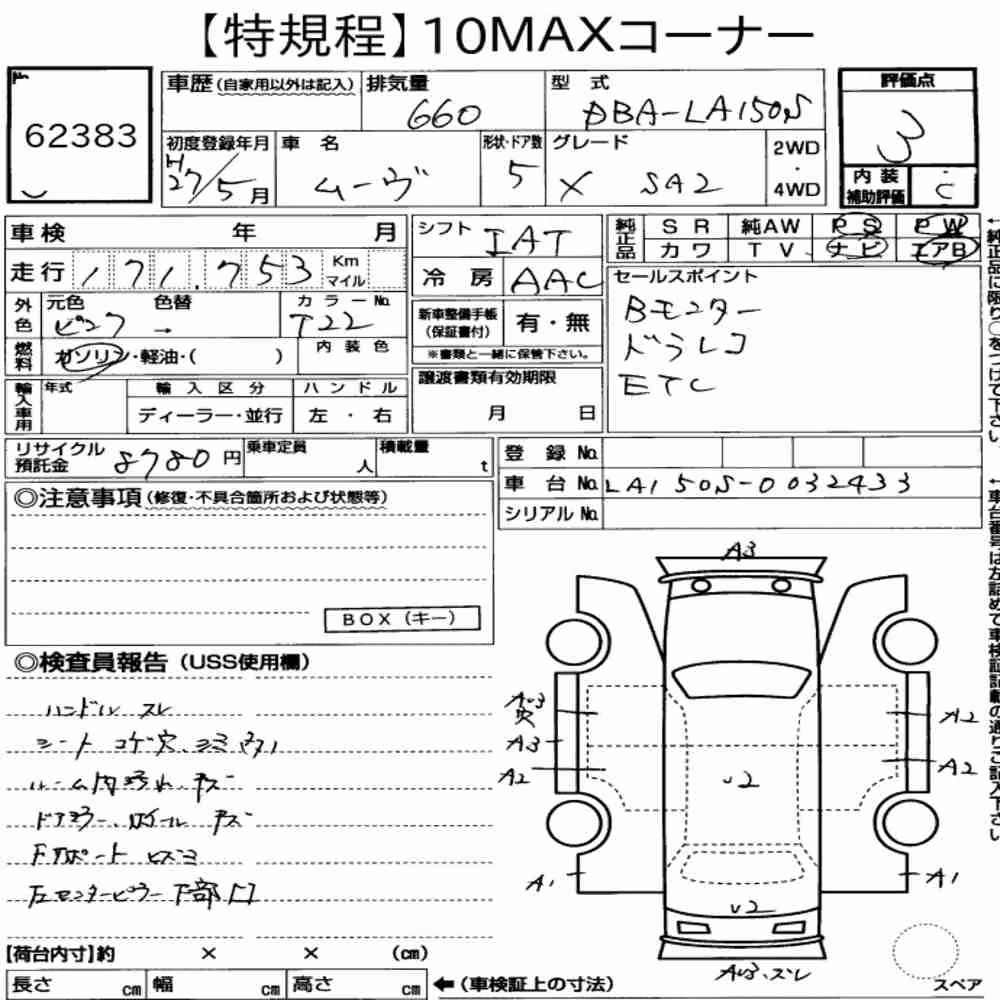 【特規程】10MAXコーナー
62383
車歴(自家用以外は記入) 排気量 660 型式 DBA-LA150S
初度登録年月 H27/5月 車名 ムーヴ 形状・ドア数 5 グレード X SA2 2WD・4WD
評価点 3
内装補助評価 C
車検 年 月
走行 171,753 Km マイル
外色 元色 ピンク 色替 → カラーNo. T22
燃料 ガソリン・軽油・( ) 内装色
輸入車用 年式 輸入区分 ハンドル
ディーラー・並行 左・右
シフト IAT
冷房 AAC
新車整備手帳(保証書付) 有・無
※書類と一緒に保管下さい。
譲渡書類有効期限
月 日
純正品 SR 純AW PS PW
カワ TV ナビ エアB
セールスポイント
Bモニター
ドラレコ
ETC
←純正品に限り○をつけて下さい。
リサイクル預託金 8780円 乗車定員 人 積載量 t
登録No.
車台No. LA150S-0032433
シリアルNo.
←車台番号は左詰めで車検証記載の通りご記入下さい。
◎注意事項(修復・不具合箇所および状態等)
BOX(キー)
◎検査員報告(USS使用欄)
ハンドル スレ
シート コゲ穴、シミ
ルーム内汚れ、キズ
ドアミラー、ホイール キズ
Fサポート ヒズミ
左センターピラー下部凹
A3
A3
穴
A3
A2
A2
A2
U2
A1
A1
U2
AU3、ズレ
スペア
【荷台内寸】約 × × (cm)
長さ cm 幅 cm 高さ cm ←(車検証上の寸法)